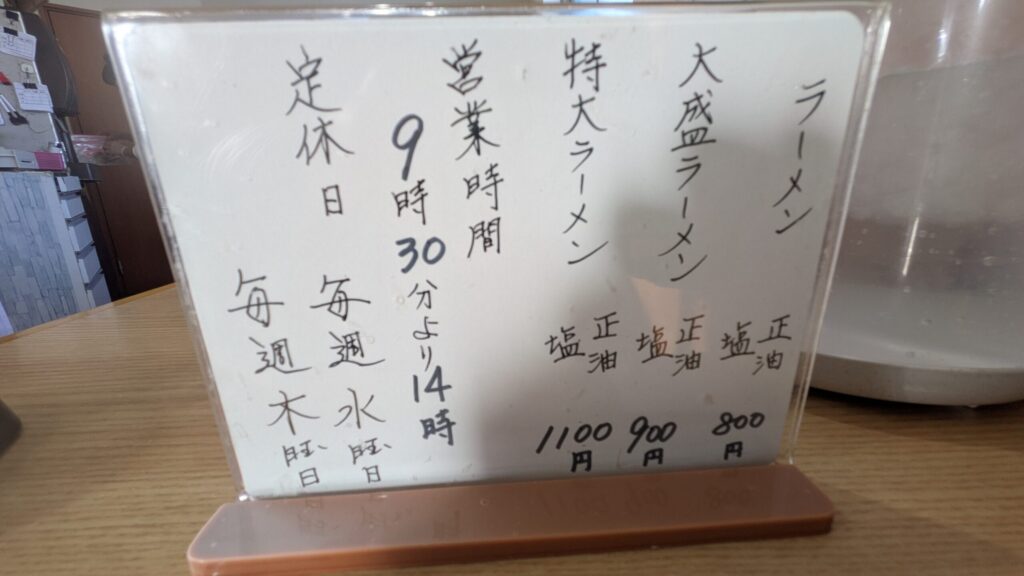 ラーメン 正油 塩 800円
大盛ラーメン 正油 塩 900円
特大ラーメン 正油 塩 1100円
営業時間
9時30分より14時
定休日 毎週水曜日
毎週木曜日